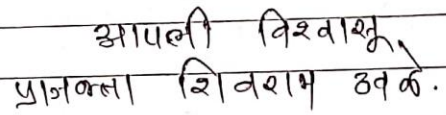 आपली विश्वासू,
प्राजक्ता शिवराम उबळे.